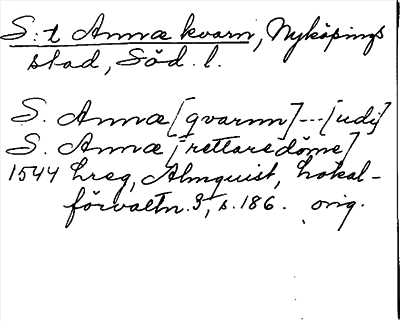 S:t Annæ kvarn, Nyköpings
stad, Söd. l.
S. Annæ [qvarnn] --- [udj]
S. Annæ [rettaredöme]
1544 hreg, Almquist, Lokal-
förvaltn. 3, s. 186. orig.